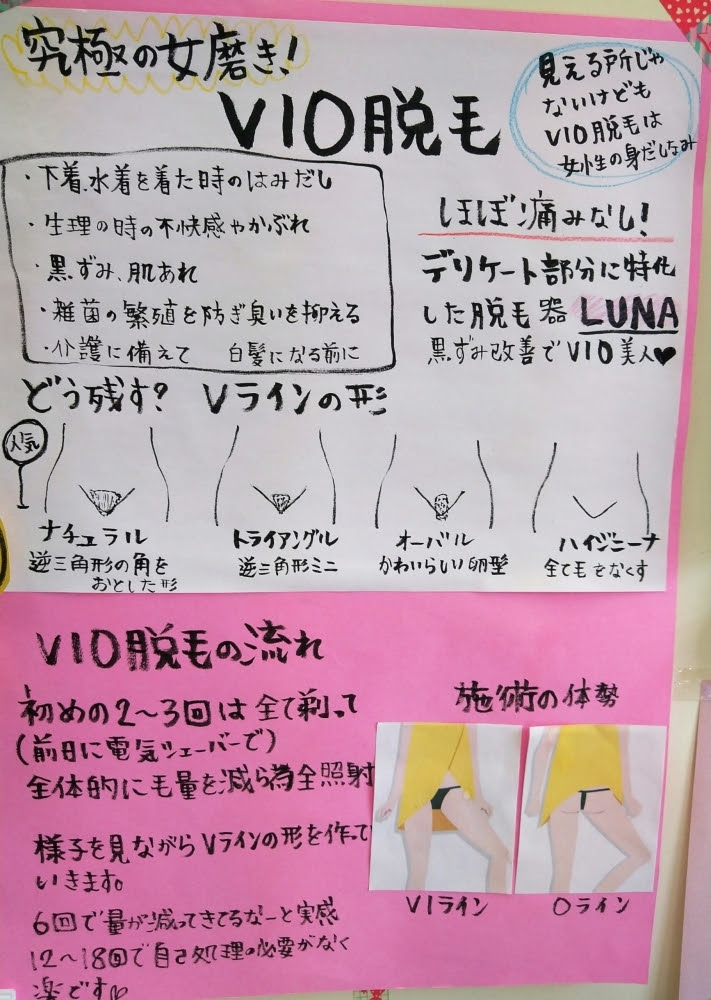 究極の女磨き!
VIO脱毛
見える所じゃ
ないけども
VIO脱毛は
女性の身だしなみ
・下着、水着を着た時のはみだし
・生理の時の不快感やかぶれ
・黒ずみ、肌あれ
・雑菌の繁殖を防ぎ臭いを抑える
・介護に備えて 白髪になる前に
ほぼ痛みなし!
デリケート部分に特化
した脱毛器 LUNA
黒ずみ改善でVIO美人♥
どう残す? Vラインの形
人気
ナチュラル
逆三角形の角を
おとした形
トライアングル
逆三角形ミニ
オーバル
かわいらしい卵型
ハイジニーナ
全て毛をなくす
VIO脱毛の流れ
初めの2〜3回は全て剃って
(前日に電気シェーバーで)
全体的に毛量を減ら為全照射
様子を見ながらVラインの形を作って
いきます。
6回で量が減ってきてるなーと実感
12〜18回で自己処理の必要がなく
楽です♡
施術の体勢
VIライン
Oライン